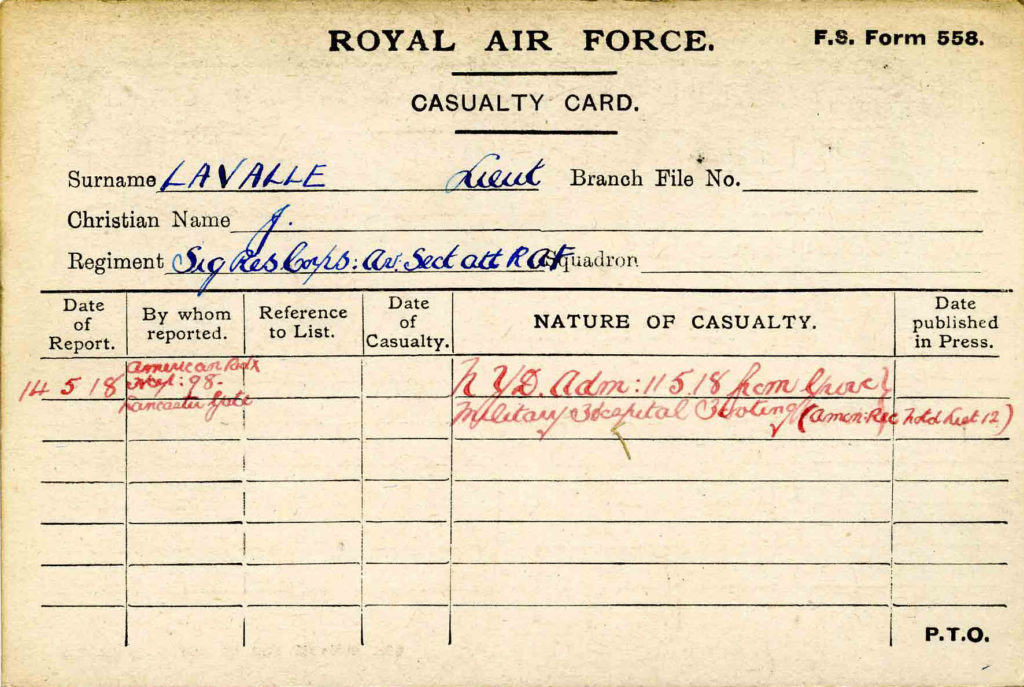 ROYAL AIR FORCE. F.S. Form 558.
CASUALTY CARD.
Surname LAVALLE Lieut Branch File No.
Christian Name J.
Regiment Sig Res Corps: Av. Sect att RAF Squadron
Date of Report. By whom reported. Reference to List. Date of Casualty. NATURE OF CASUALTY. Date published in Press.
14 5 18 American Red X Hospl: 98- Lancaster Gate N.Y.D. Adm: 11 5.18 from Grove
Military Hospital Tooting (Amer: Rec hold List 12)
P.T.O.